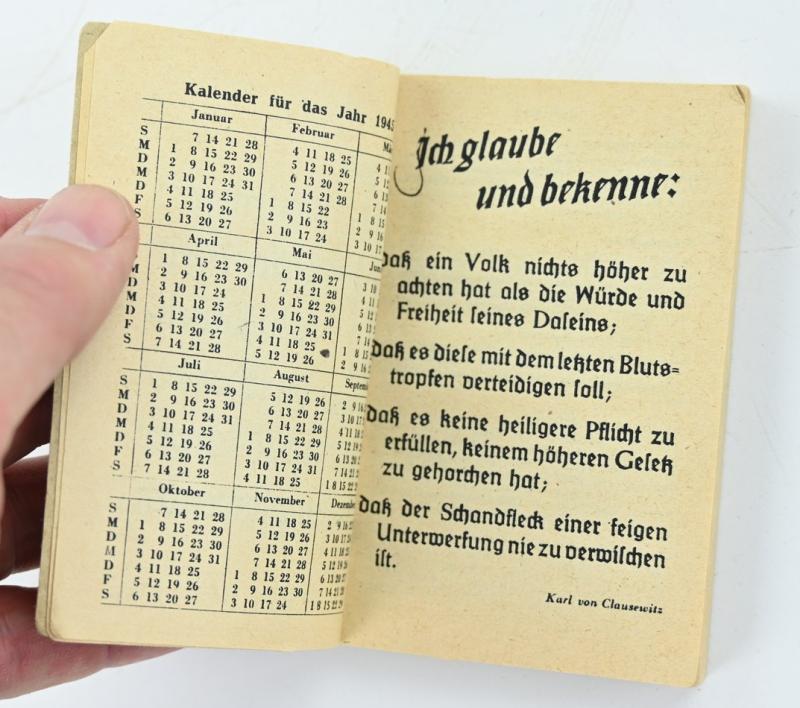 Kalender für das Jahr 1945
Januar Februar
S 7 14 21 28 4 11 18 25
M 1 8 15 22 29 5 12 19 26
D 2 9 16 23 30 6 13 20 27
M 3 10 17 24 31 7 14 21 28
D 4 11 18 25 1 8 15 22
F 5 12 19 26 2 9 16 23
S 6 13 20 27 3 10 17 24
April Mai
1 8 15 22 29 6 13 20 27
M 2 9 16 23 30 7 14 21 28
D 3 10 17 24 1 8 15 22 29
M 4 11 18 25 2 9 16 23 30
D 5 12 19 26 3 10 17 24 31
F 6 13 20 27 4 11 18 25
S 7 14 21 28 5 12 19 26
Juli August
S 1 8 15 22 29 5 12 19 26
M 2 9 16 23 30 6 13 20 27
D 3 10 17 24 31 7 14 21 28
M 4 11 18 25 1 8 15 22 29
D 5 12 19 26 2 9 16 23 30
F 6 13 20 27 3 10 17 24 31
S 7 14 21 28 4 11 18 25
Oktober November
S 7 14 21 28 4 11 18 25
M 1 8 15 22 29 5 12 19 26
D 2 9 16 23 30 6 13 20 27
M 3 10 17 24 31 7 14 21 28
D 4 11 18 25 1 8 15 22 29
F 5 12 19 26 2 9 16 23 30
S 6 13 20 27 3 10 17 24
Ich glaube
und bekenne:
daß ein Volk nichts höher zu
achten hat als die Würde und
Freiheit seines Daseins;
daß es diese mit dem letzten Bluts=
tropfen verteidigen soll;
daß es keine heiligere Pflicht zu
erfüllen, keinem höheren Gesetz
zu gehorchen hat;
daß der Schandfleck einer feigen
Unterwerfung nie zu verwischen
ist.
Karl von Clausewitz